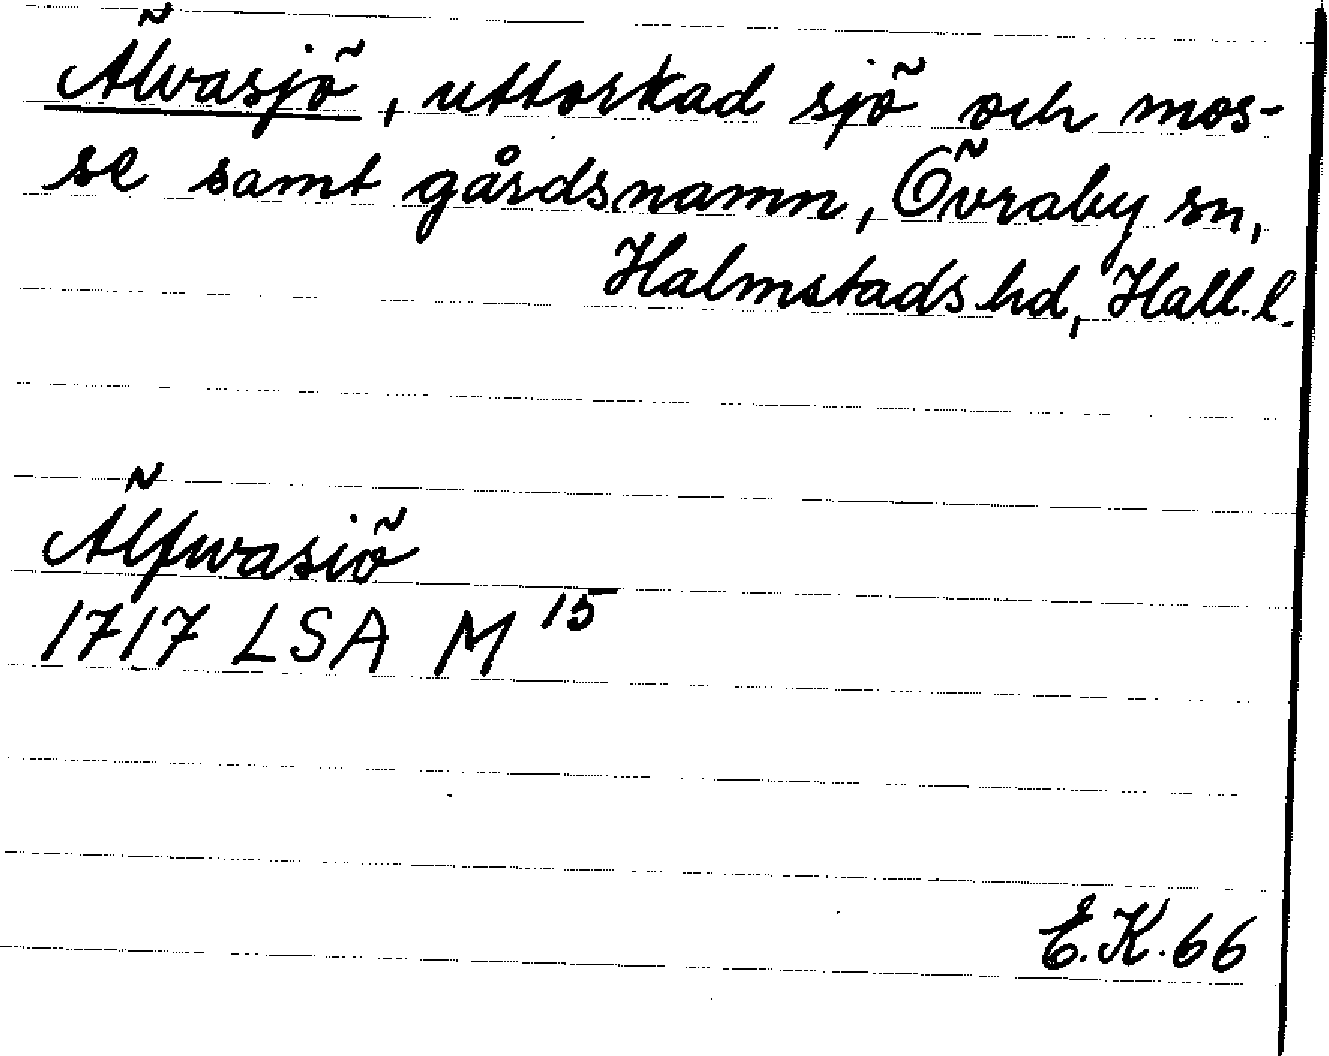 Älvasjö, uttorkad sjö och mos-
se samt gårdsnamn, Övraby sn,
Halmstads hd, Hall. l.
Älfwasiö
1717 LSA M 15
E.K. 66